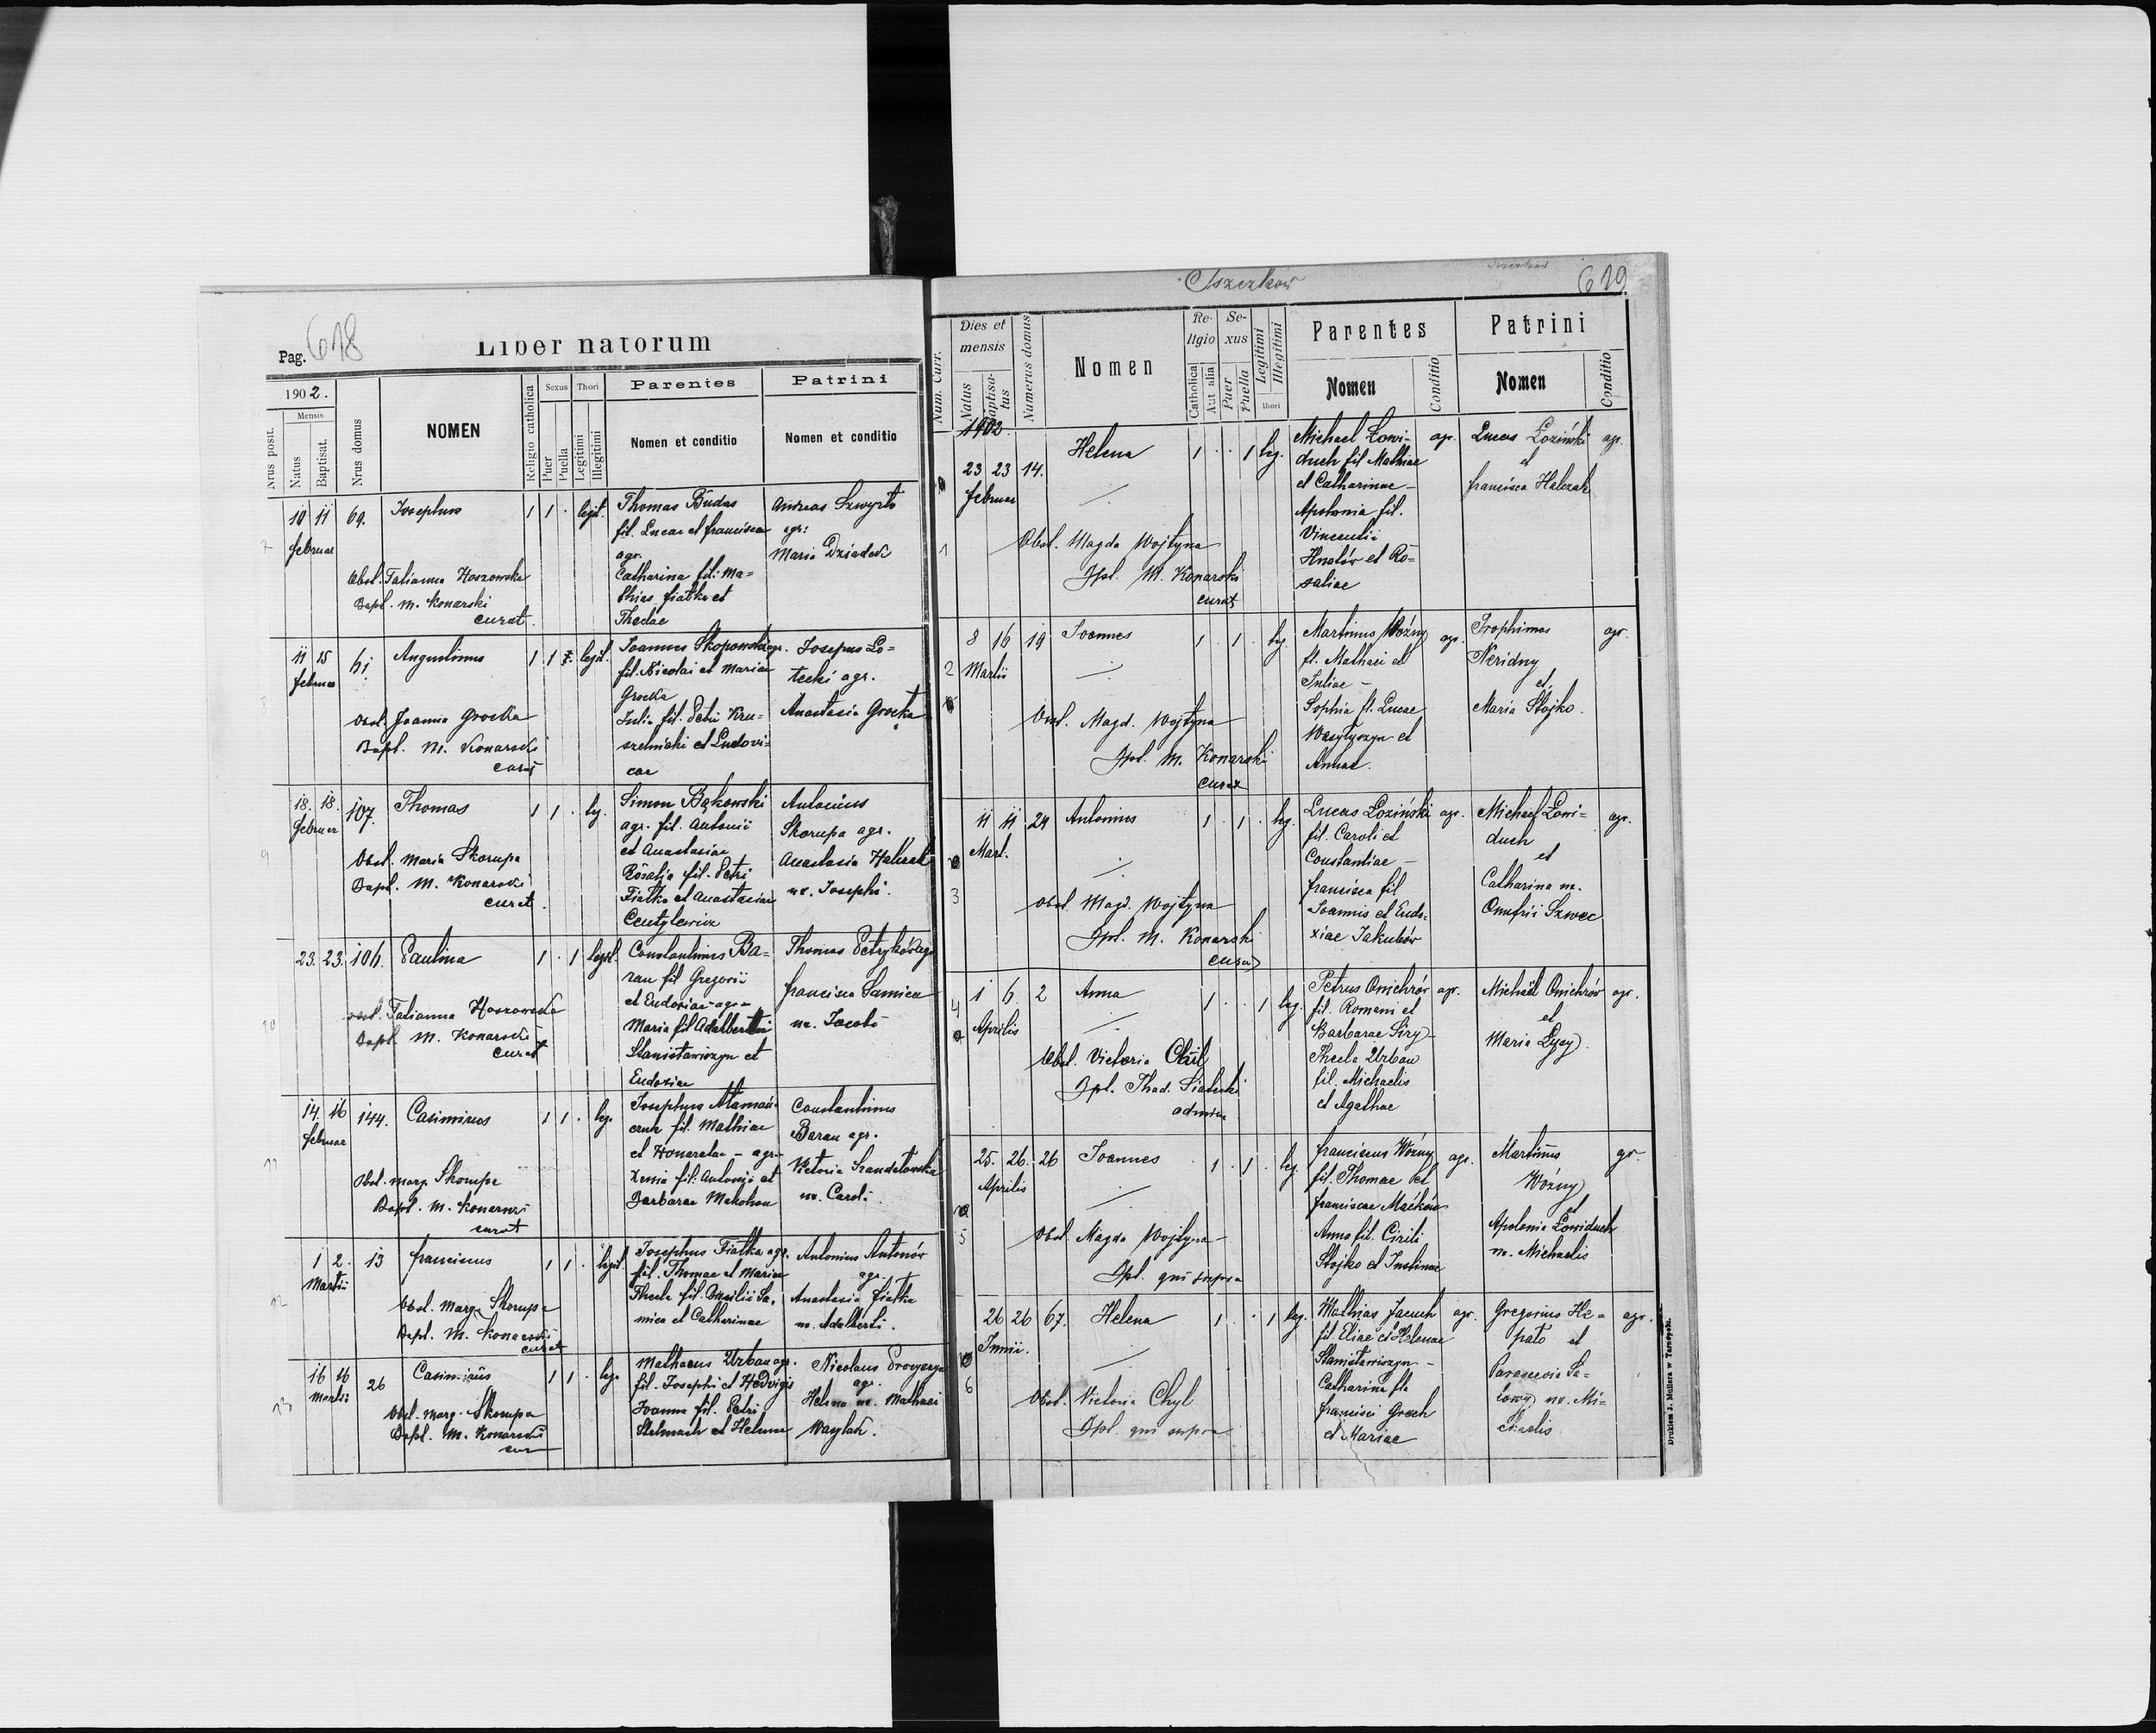 Pag. 618
Liber natorum
1902.
Mensis
Nrus posit.
Natus
Baptisat.
Nrus domus
NOMEN
Religio catholica
Sexus
Puer
Puella
Thori
Legitimi
Illegitimi
Parentes
Nomen et conditio
Patrini
Nomen et conditio
7
10 11 69. Josephus 1 1 · legit.
Februar
Obst. Tatianna Hoszowska
Bapt. M. Konarski
curat.
Thomas Budas
fil. Lucae et Francisca
agr.
Catharina fil. Ma=
thias Fiałka et
Theclae
Andreas Szwyrło
agr:
Maria Dziadek
11 15 61. Augustinus 1 1 legit.
Februar
Obst. Joanna Grocka
Bapt. M. Konarski
curat
Joannes Skopowski agr.
fil. Nicolai et Mariae
Grocka
Julia fil. Petri Kru=
szelnicki et Ludovi=
cae
Josepus Lo=
tecki agr.
Anastasia Grocka
9
18. 18. 107. Thomas 1 1 · leg.
Februar
Obst. Maria Skorupa
Bapt. M. Konarski
curat.
Simon Bąkowski
agr. fil. Antonii
et Anastasiae
Rosalia fil. Petri
Fiałka et Anastasiae
Centylewicz
Antonius
Skorupa agr.
Anastasia Halczak
ux. Josephi
10
23. 23. 106. Paulina 1 · 1 legit.
obst. Tatianna Hoszowska
Bapt. M. Konarski
curat
Constantinus Ba=
ran fil Gregorii
et Eudosiae agr-
Maria fil Adalberti
Stanisławiszyn et
Eudosiae
Thomas Petryków agr
Francisca Samica
ux. Jacobi
11
14. 16 144. Casimirus 1 1 · leg.
Februar
Obst. Marg. Skorupa
Bapt. M. Konarski
curat
Josephus Ataman=
czuk fil. Mathiae
et Honoratae - agr-
Xenia fil. Antonii et
Barbarae Mekohon
Constantinus
Baran agr.
Victoria Szandałowska
ux. Caroli
12
1 2. 13 Franciscus 1 1 · legit.
Martii
Obst. Marg. Skorupa
Bapt. M. Konarski
curat
Josephus Fiałka agr.
fil. Thomae et Mariae
Thecla fil. Basilii Sa=
mica et Catharinae
Antonius Antonów
agr.
Anastasia Fiałka
ux. Adalberti.
13
16 16 26 Casimirus 1 1 · leg.
Martii
Obst. Marg. Skorupa
Bapt. M. Konarski
cur
Mathaeus Urban agr.
fil. Josephi et Hedvigis
Joanna fil. Petri
Stelmach et Helenae
Nicolaus
agr.
Helena ux. Mathaei
Wasylak.
Iszczków
619.
Num. Curr.
Dies et
mensis
Natus
Baptisa-
tus
Numerus domus
Nomen
Re-
ligio
Catholica
Aut alia
Se-
xus
Puer
Puella
Legitimi
Illegitimi
thori
Parentes
Nomen
Conditio
Patrini
Nomen
Conditio
1902
23 23 14. Helena 1 · · 1 leg.
Februar
1
Obst. Magda Wojtyna
Bpt. M. Konarski
curat
Michael Łowi- agr.
duch fil Mathiae
et Catharinae -
Apolonia fil.
Vincentii
Hnatów et Ro=
saliae
Lucas Łoziński agr.
et
Francisca Halczak
2
8 16 19 Joannes 1 · 1 · leg.
Martii
Obst. Magd. Wojtyna
Bpt. M. Konarski
curat
Martinus Woźny agr.
fl. Mathaei et
Juliae -
Sophia fl. Lucae
Wasylyszyn et
Annae.
Trophimus agr.
Neridny
et
Maria Stojko.
3
11 11 24 Antonius 1 · 1 · leg.
Mart.
Obst. Magd. Wojtyna
Bpt. M. Konarski
curat
Lucas Łoziński agr.
fil. Caroli et
Constantiae -
Francisca fil
Joannis et Eudo=
xiae Jakubów
Michael Łowi= agr.
duch
et
Catharina ux.
Onufrii Szwec
4
1 6. 2 Anna 1 · · 1 leg.
Aprilis
Obst. Victoria Chyl
Bpt. Thad.
admin
Petrus Onichrów agr.
fil. Romani et
Barbarae Siry-
Thecla Urban
fil. Michaelis
et Agathae
Michaël Onichrów agr.
et
Maria Łysy
5
25. 26. 26 Joannes 1 · 1 · leg.
Aprilis
Obst. Magda Wojtyna
Bpt. qui supra
Franciscus Woźny agr.
fil. Thomae et
Franciscae Maćków
Anna fil. Cirili
Stojko et Justinae
Martinus gr.
Woźny
et
Apolonia Łowiduch
ux. Michaelis
6
26 26 67. Helena 1 · · 1 leg.
Junii.
Obst. Victoria Chyl
Bpt. qui supra
Mathias Jacuch agr.
fil. Eliae et Helenae
Stanisławiszyn -
Catharina fla
Francisci Groch
et Mariae
Gregorius He= agr.
pato et
Parascevia Sa=
łowy ux. Mi=
chaelis
Drukiem J. Mullera w Tarnopolu.